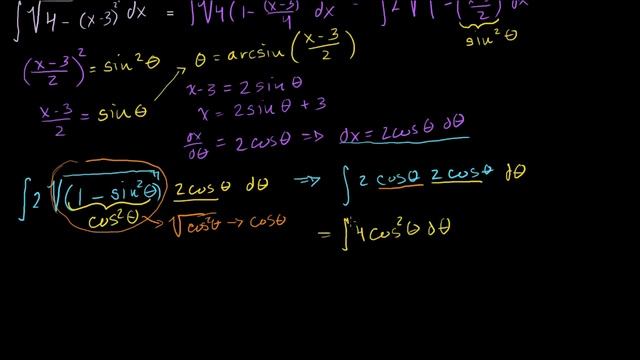 ∫√4 − (x−3)² dx = ∫√4(1 − (x−3)/4 dx = ∫2√1 − (x−3/2)² dx
sin²θ
(x−3/2)² = sin²θ
θ = arcsin(x−3/2)
x−3/2 = sinθ
x−3 = 2sinθ
x = 2sinθ + 3
dx/dθ = 2cosθ ⇒ dx = 2cosθ dθ
∫2√(1 − sin²θ) 2cosθ dθ ⇒ ∫2 cosθ 2cosθ dθ
cos²θ → √cos²θ → cosθ
= ∫4cos²θ dθ